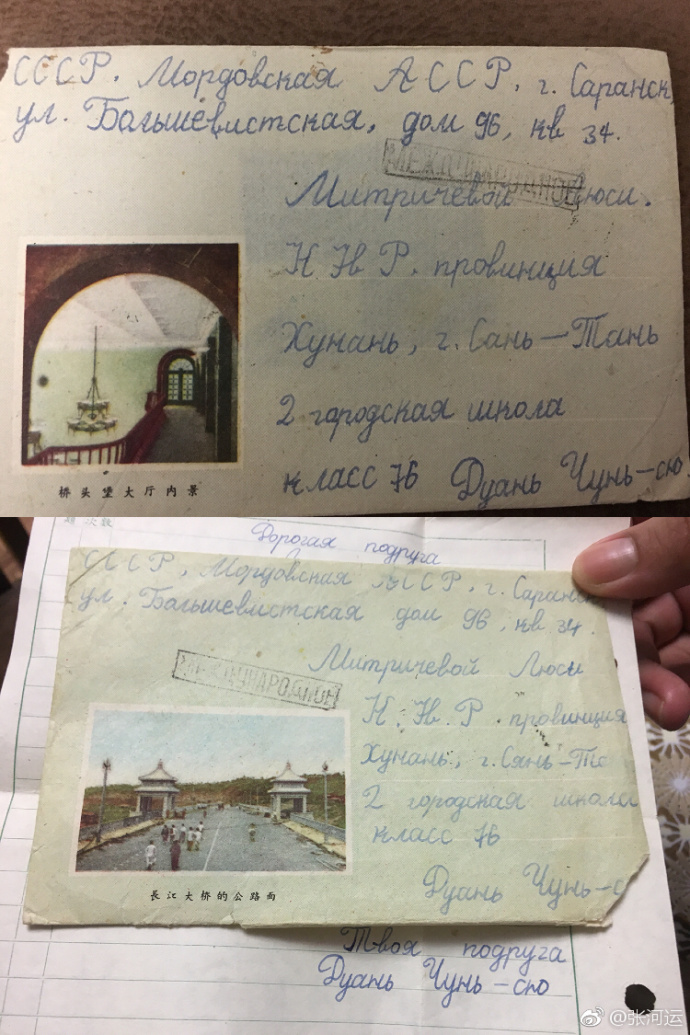 СССР. Мордовская АССР. г. Саранск
ул. Большевистская, дом 96, кв 34.
МЕЖДУНАРОДНОЕ
Митричевой Люси.
К Н Р. провинция
Хунань, г. Сань-Тань
2 городская школа
класс 76 Дуань Чунь-сю
桥头堡大厅内景
次数
Дорогая подруга
СССР, Мордовская АССР, г. Саранск
ул. Большевистская дом 96, кв 34.
МЕЖДУНАРОДНОЕ
Митричевой Люси
К. Н. Р. провинция
Хунань, г. Сянь-Та
2 городская школа
класс 76
長江大桥的公路面
Дуань Чунь-с
Твоя подруга
Дуань Чунь-сю
@张河运